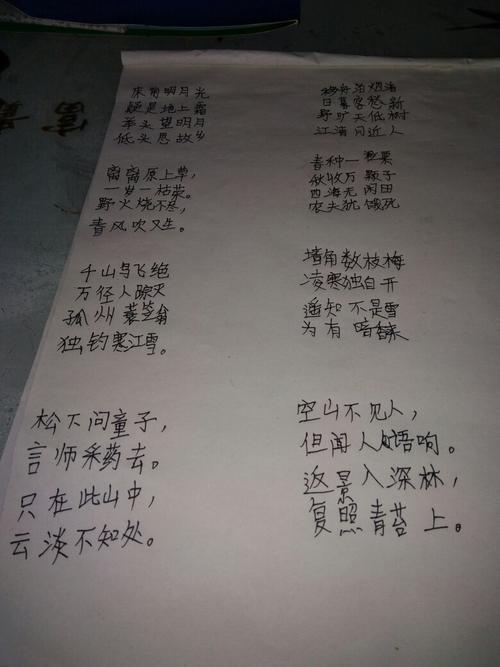 床前明月光
疑是地上霜
举头望明月
低头思故乡
离离原上草,
一岁一枯荣。
野火烧不尽,
春风吹又生。
千山鸟飞绝
万径人踪灭
孤州蓑笠翁
独钓寒江雪。
松下问童子,
言师采药去。
只在此山中,
云淡不知处。
移舟泊烟渚
日暮客愁新
野旷天低树
江清月近人
春种一粒粟
秋收万颗子
四海无闲田
农夫犹饿死
墙角数枝梅
凌寒独自开
遥知不是雪
为有暗香来
空山不见人,
但闻人语响。
返景入深林,
复照青苔上。